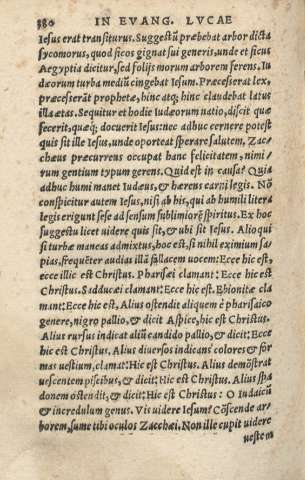 380 IN EVANG. LVCAE
Iesus erat transiturus. Suggestū præbebat arbor dicta
sycomorus, quod ficos gignat sui generis, unde et ficus
Aegyptia dicitur, sed folijs morum arborem ferens. Iu
dæorum turba mediū cingebat Iesum. Præcesserat lex,
præcesserāt prophetæ, hinc atq; hinc claudebat latus
illa ætas. Sequitur et hodie Iudæorum natio, discit quæ
fecerit, quæq; docuerit Iesus: nec adhuc cernere potest
quis sit ille Iesus, unde oporteat sperare salutem, Zac/
chæus præcurrens occupat hanc felicitatem, nimi/
rum gentium typum gerens. Quid est in causa? Quia
adhuc humi manet Iudæus, & hærens carni legis. Nō
conspicitur autem Iesus, nisi ab his, qui ab humili litera
legis erigunt sese ad sensum sublimiorē spiritus. Ex hoc
suggestu licet uidere quis sit, & ubi sit Iesus. Alioqui
si turbæ maneas admixtus, hoc est, si nihil eximium sa/
pias, frequēter audias illā fallacem uocem: Ecce hic est,
ecce illic est Christus. Pharisæi clamant: Ecce hic est
Christus. Sadducæi clamant: Ecce hic est. Ebionitæ cla
mant: Ecce hic est, Alius ostendit aliquem è pharisaico
genere, nigro pallio, & dicit Aspice, hic est Christus.
Alius rursus indicat aliū candido pallio, & dicit: Ecce
hic est Christus. Alius diuersos indicans colores & for
mas uestium, clamat: Hic est Christus. Alius demōstrat
uescentem piscibus, & dicit: Hic est Christus. Alius spa
donem ostendit, & dicit: Hic est Christus: O Iudaicū
& incredulum genus. Vis uidere Iesum? Cōscende ar/
borem, sume tibi oculos Zacchæi. Non ille cupit uidere
uestem